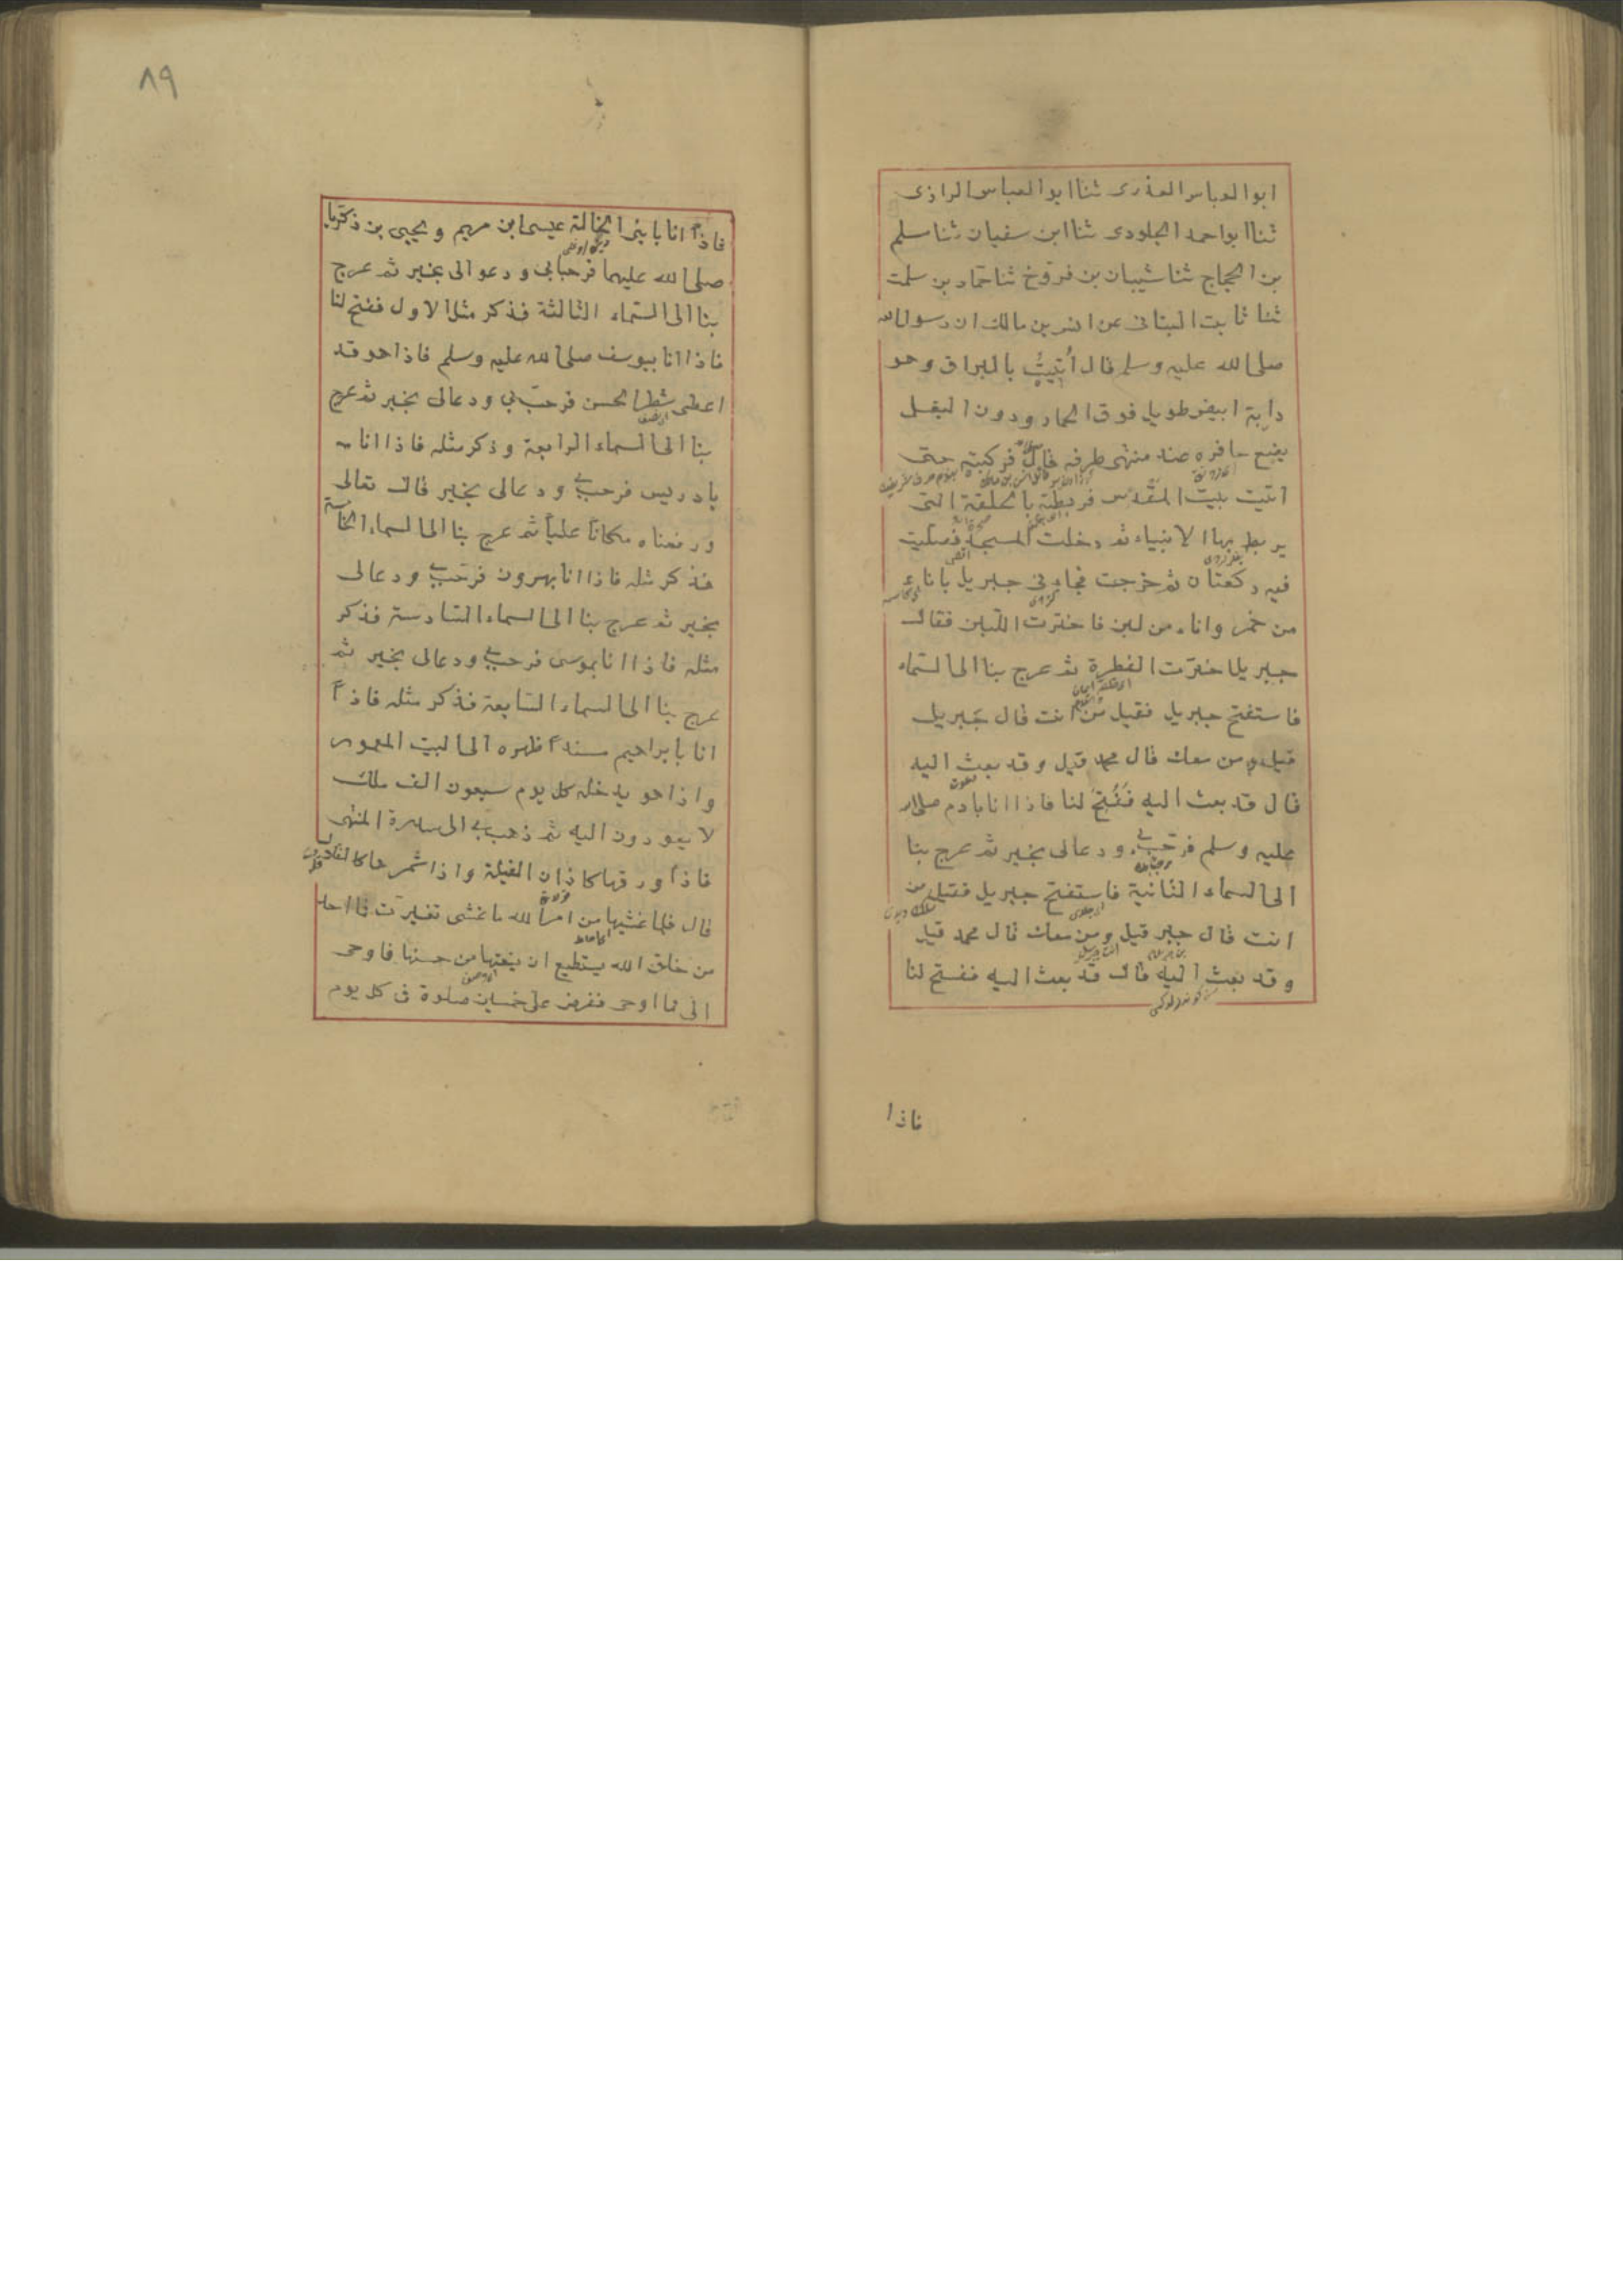 ابو العباس العذرى ثنا ابو العباس الرازى
ثنا ابو احمد الجلودى ثنا ابن سفيان ثنا مسلم
بن الحجاج ثنا شيبان بن فروخ ثنا حماد بن سلمت
ثنا ثابت البنانى عن انس بن مالك ان رسول الله
صلى الله عليه وسلم قال أُتيتُ بالبراق وهو
دابة ابيض طويل فوق الحمار ودون البغل
يضع حافره عند منتهى طرفه قال فركبته حتى
اتيت بيت المقدس فربطته بالحلقة التى
يربط بها الانبياء ثم دخلت المسجد فصليت
فيه ركعتان ثم خرجت فجاءنى جبريل باناء
من خمر واناء من لبن فاخترت اللبن فقال
جبريل اخترت الفطرة ثم عرج بنا الى السماء
فاستفتح جبريل فقيل من انت قال جبريل
قيل ومن معك قال محمد قيل وقد بعث اليه
قال قد بعث اليه ففُتح لنا فاذا انا بادم صلى الله
عليه وسلم فرحّب بى ودعالى بخير ثم عرج بنا
الى السماء الثانية فاستفتح جبريل فقيل من
انت قال جبر قيل ومن معك قال محمد قيل
وقد بعث اليه قال قد بعث اليه ففتح لنا
فاذا
٨٩
فاذا انا بابنى الخالة عيسى ابن مريم ويحيى بن زكريا
صلى الله عليهما فرحبا بى ودعوا لى بخير ثم عرج
بنا الى السماء الثالثة فذكر مثل الاول ففتح لنا
فاذا انا بيوسف صلى الله عليه وسلم فاذا هو قد
اعطى شطر الحسن فرحّب بي ودعالى بخير ثم عرج
بنا الى السماء الرابعة وذكر مثله فاذا انا
بادريس فرحب بى ودعالى بخير قال تعالى
ورفعناه مكاناً علياً ثم عرج بنا الى السماء الخامسة
فذكر مثله فاذا انا بهرون فرحّب بى ودعالى
بخير ثم عرج بنا الى السماء السادسة فذكر
مثله فاذا انا بموسى فرحب بى ودعالى بخير ثم
عرج بنا الى السماء السابعة فذكر مثله فاذا
انا بابراهيم مسنداً ظهره الى البيت المعمور
واذا هو يدخله كل يوم سبعون الف ملك
لا يعودون اليه ثم ذهب بى الى سدرة المنتهى
فاذا ورقها كاذان الفيلة واذا ثمرها كالقلال
قال فلما غشيها من امر الله ما غشى تغيرت فما احد
من خلق الله يستطيع ان ينعتها من حسنها فاوحى
الى ما اوحى ففرض على خمسين صلوة فى كل يوم